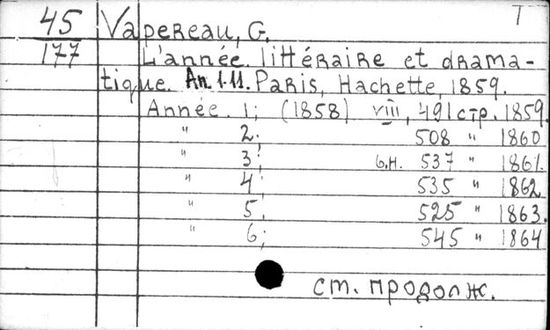 45 Vapereau, G. 7
177 L'année littéraire et drama-
tique. An. 1-11. Paris, Hachette, 1859.
Année. 1; (1858) VIII, 491 стр. 1859.
" 2. 508 " 1860
" 3; б.н. 537 " 1861.
" 4; 535 " 1862
" 5. 525 " 1863.
" 6; 545 " 1864
ст. продолж.